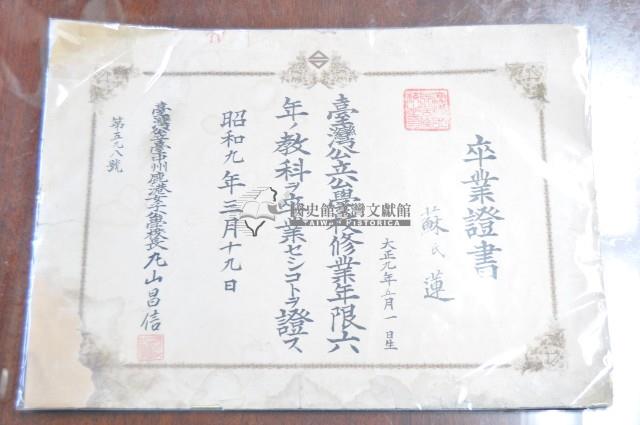 卒業證書
蘇氏蓮
大正九年五月一日生
臺灣公立公學校修業年限六
年ノ教科ヲ卒業セシコトヲ證ス
昭和九年三月十九日
臺灣公立臺中州鹿港女子公學校長 丸山昌信
第五九八號
國史館臺灣文獻館
TAIWAN HISTORICA